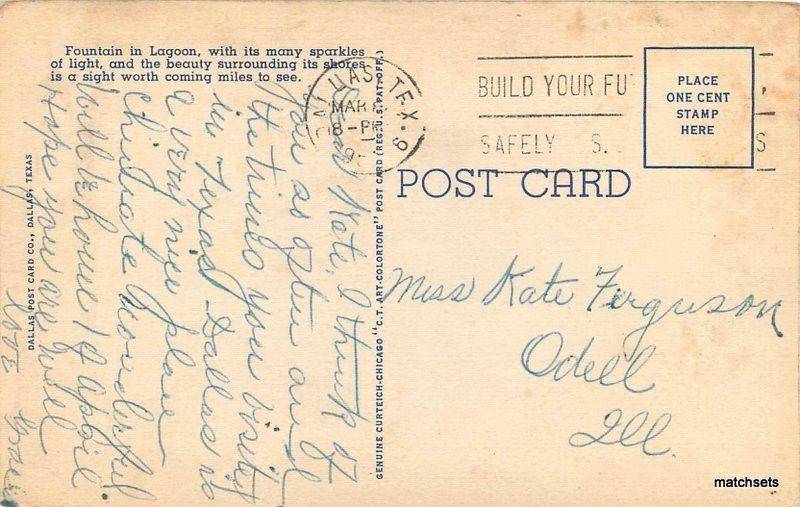 Fountain in Lagoon, with its many sparkles
of light, and the beauty surrounding its shores
is a sight worth coming miles to see.
Dear Kate, I think of
you as often and
the times you visited
in Texas. Dallas is
a very nice place
climate wonderful
will be home 1st April
Hope you are well
Love Grace
DALLAS POST CARD CO., DALLAS, TEXAS
GENUINE CURTEICH-CHICAGO "C.T. ART-COLORTONE" POST CARD (REG. U.S. PAT. OFF.)
TEX.
MAR
8-PM
BUILD YOUR FU
SAFELY S
PLACE
ONE CENT
STAMP
HERE
POST CARD
Miss Kate Ferguson
Odell
Ill.
matchsets